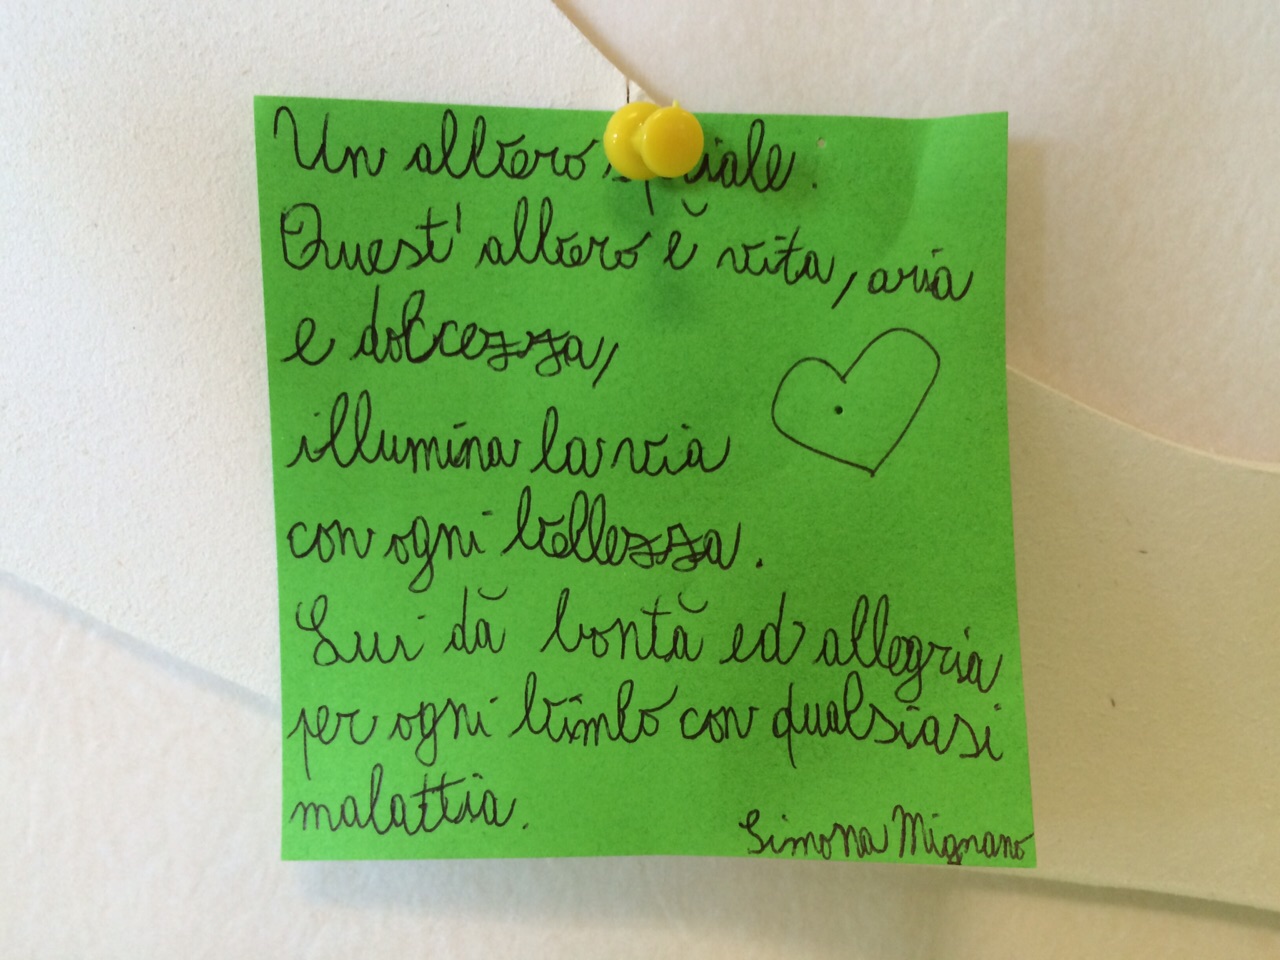 Un albero speciale.
Quest' albero è vita, aria
e dolcezza,
illumina la via
con ogni bellezza.
Lui dà bontà ed allegria
per ogni bimbo con qualsiasi
malattia.
Simona Mignano